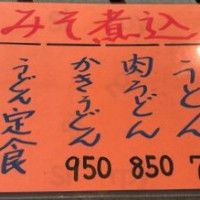 みそ煮込
うどん
7
肉うどん
850
かきうどん
950
うどん定食